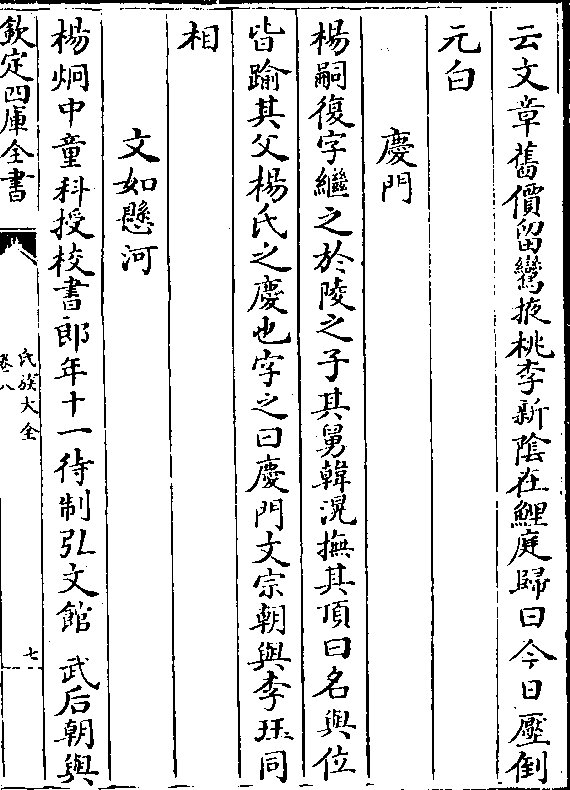 云文章舊價留鸞掖桃李新陰在鯉庭歸曰今日壓倒
元白
慶門
楊嗣復字繼之於陵之子其舅韓滉撫其頂曰名與位
皆踰其父楊氏之慶也字之曰慶門文宗朝與李珏同
相
文如懸河
楊炯中童科授校書郎年十一待制弘文館 武后朝與
欽定四庫全書
氏族大全
卷八
七